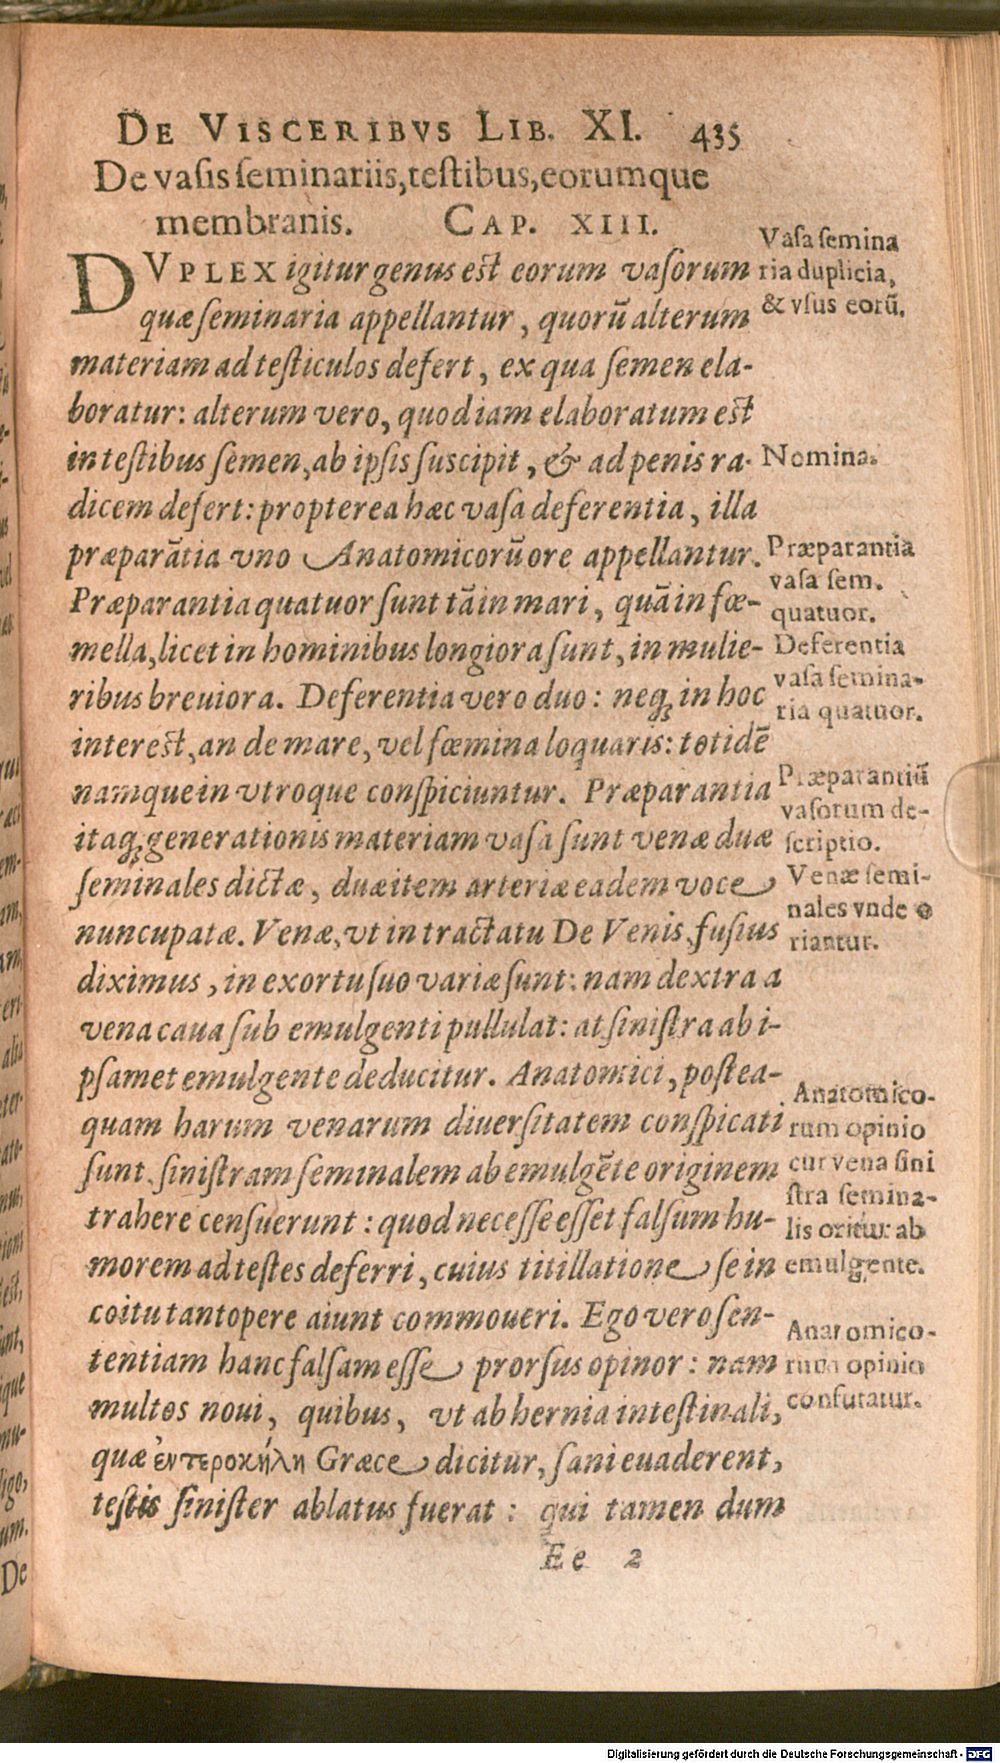 DE VISCERIBVS LIB. XI. 435
De vasis seminariis, testibus, eorumque
membranis. CAP. XIII.
DVPLEX igitur genus est eorum vasorum
quæ seminaria appellantur, quorũ alterum
materiam ad testiculos defert, ex qua semen ela-
boratur: alterum vero, quod iam elaboratum est
in testibus semen, ab ipsis suscipit, & ad penis ra-
dicem defert: propterea hæc vasa deferentia, illa
præparãtia vno Anatomicorũ ore appellantur.
Præparantia quatuor sunt tã in mari, quã in fœ-
mella, licet in hominibus longiora sunt, in mulie-
ribus breuiora. Deferentia vero duo: neq; in hoc
interest, an de mare, vel fœmina loquaris: totidẽ
namque in vtroque conspiciuntur. Præparantia
itaq; generationis materiam vasa sunt venæ duæ
seminales dictæ, duæ item arteriæ eadem voce
nuncupatæ. Venæ, vt in tractatu De Venis, fusius
diximus, in exortu suo variæ sunt: nam dextra a
vena caua sub emulgenti pullulat: at sinistra ab i-
psamet emulgente deducitur. Anatomici, postea-
quam harum venarum diuersitatem conspicati
sunt, sinistram seminalem ab emulgẽte originem
trahere censuerunt: quod necesse esset falsum hu-
morem ad testes deferri, cuius titillatione se in
coitu tantopere aiunt commoueri. Ego vero sen-
tentiam hanc falsam esse prorsus opinor: nam
multos noui, quibus, vt ab hernia intestinali,
quæ ἐντεροκήλη Græce dicitur, sani euaderent,
testis sinister ablatus fuerat: qui tamen dum
Ee 2
Vasa semina
ria duplicia,
& vsus eorũ.
Nomina.
Præparantia
vasa sem.
quatuor.
Deferentia
vasa semina-
ria quatuor.
Præparantiũ
vasorum de-
scriptio.
Venæ semi-
nales vnde o
riantur.
Anatomico-
rum opinio
cur vena sini
stra semina-
lis oritur ab
emulgente.
Anatomico-
rum opinio
confutatur.
De
Digitalisierung gefördert durch die Deutsche Forschungsgemeinschaft - DFG